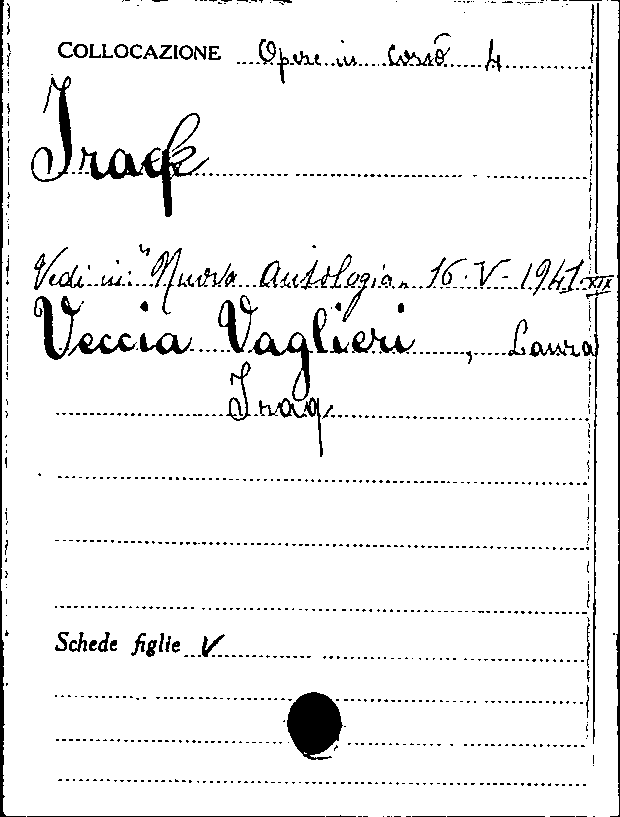 COLLOCAZIONE Opere in corso 4
Iraq
Vedi in: "Nuova Antologia" 16-V-1941-XIX
Veccia Vaglieri, Laura
Iraq
Schede figlie V